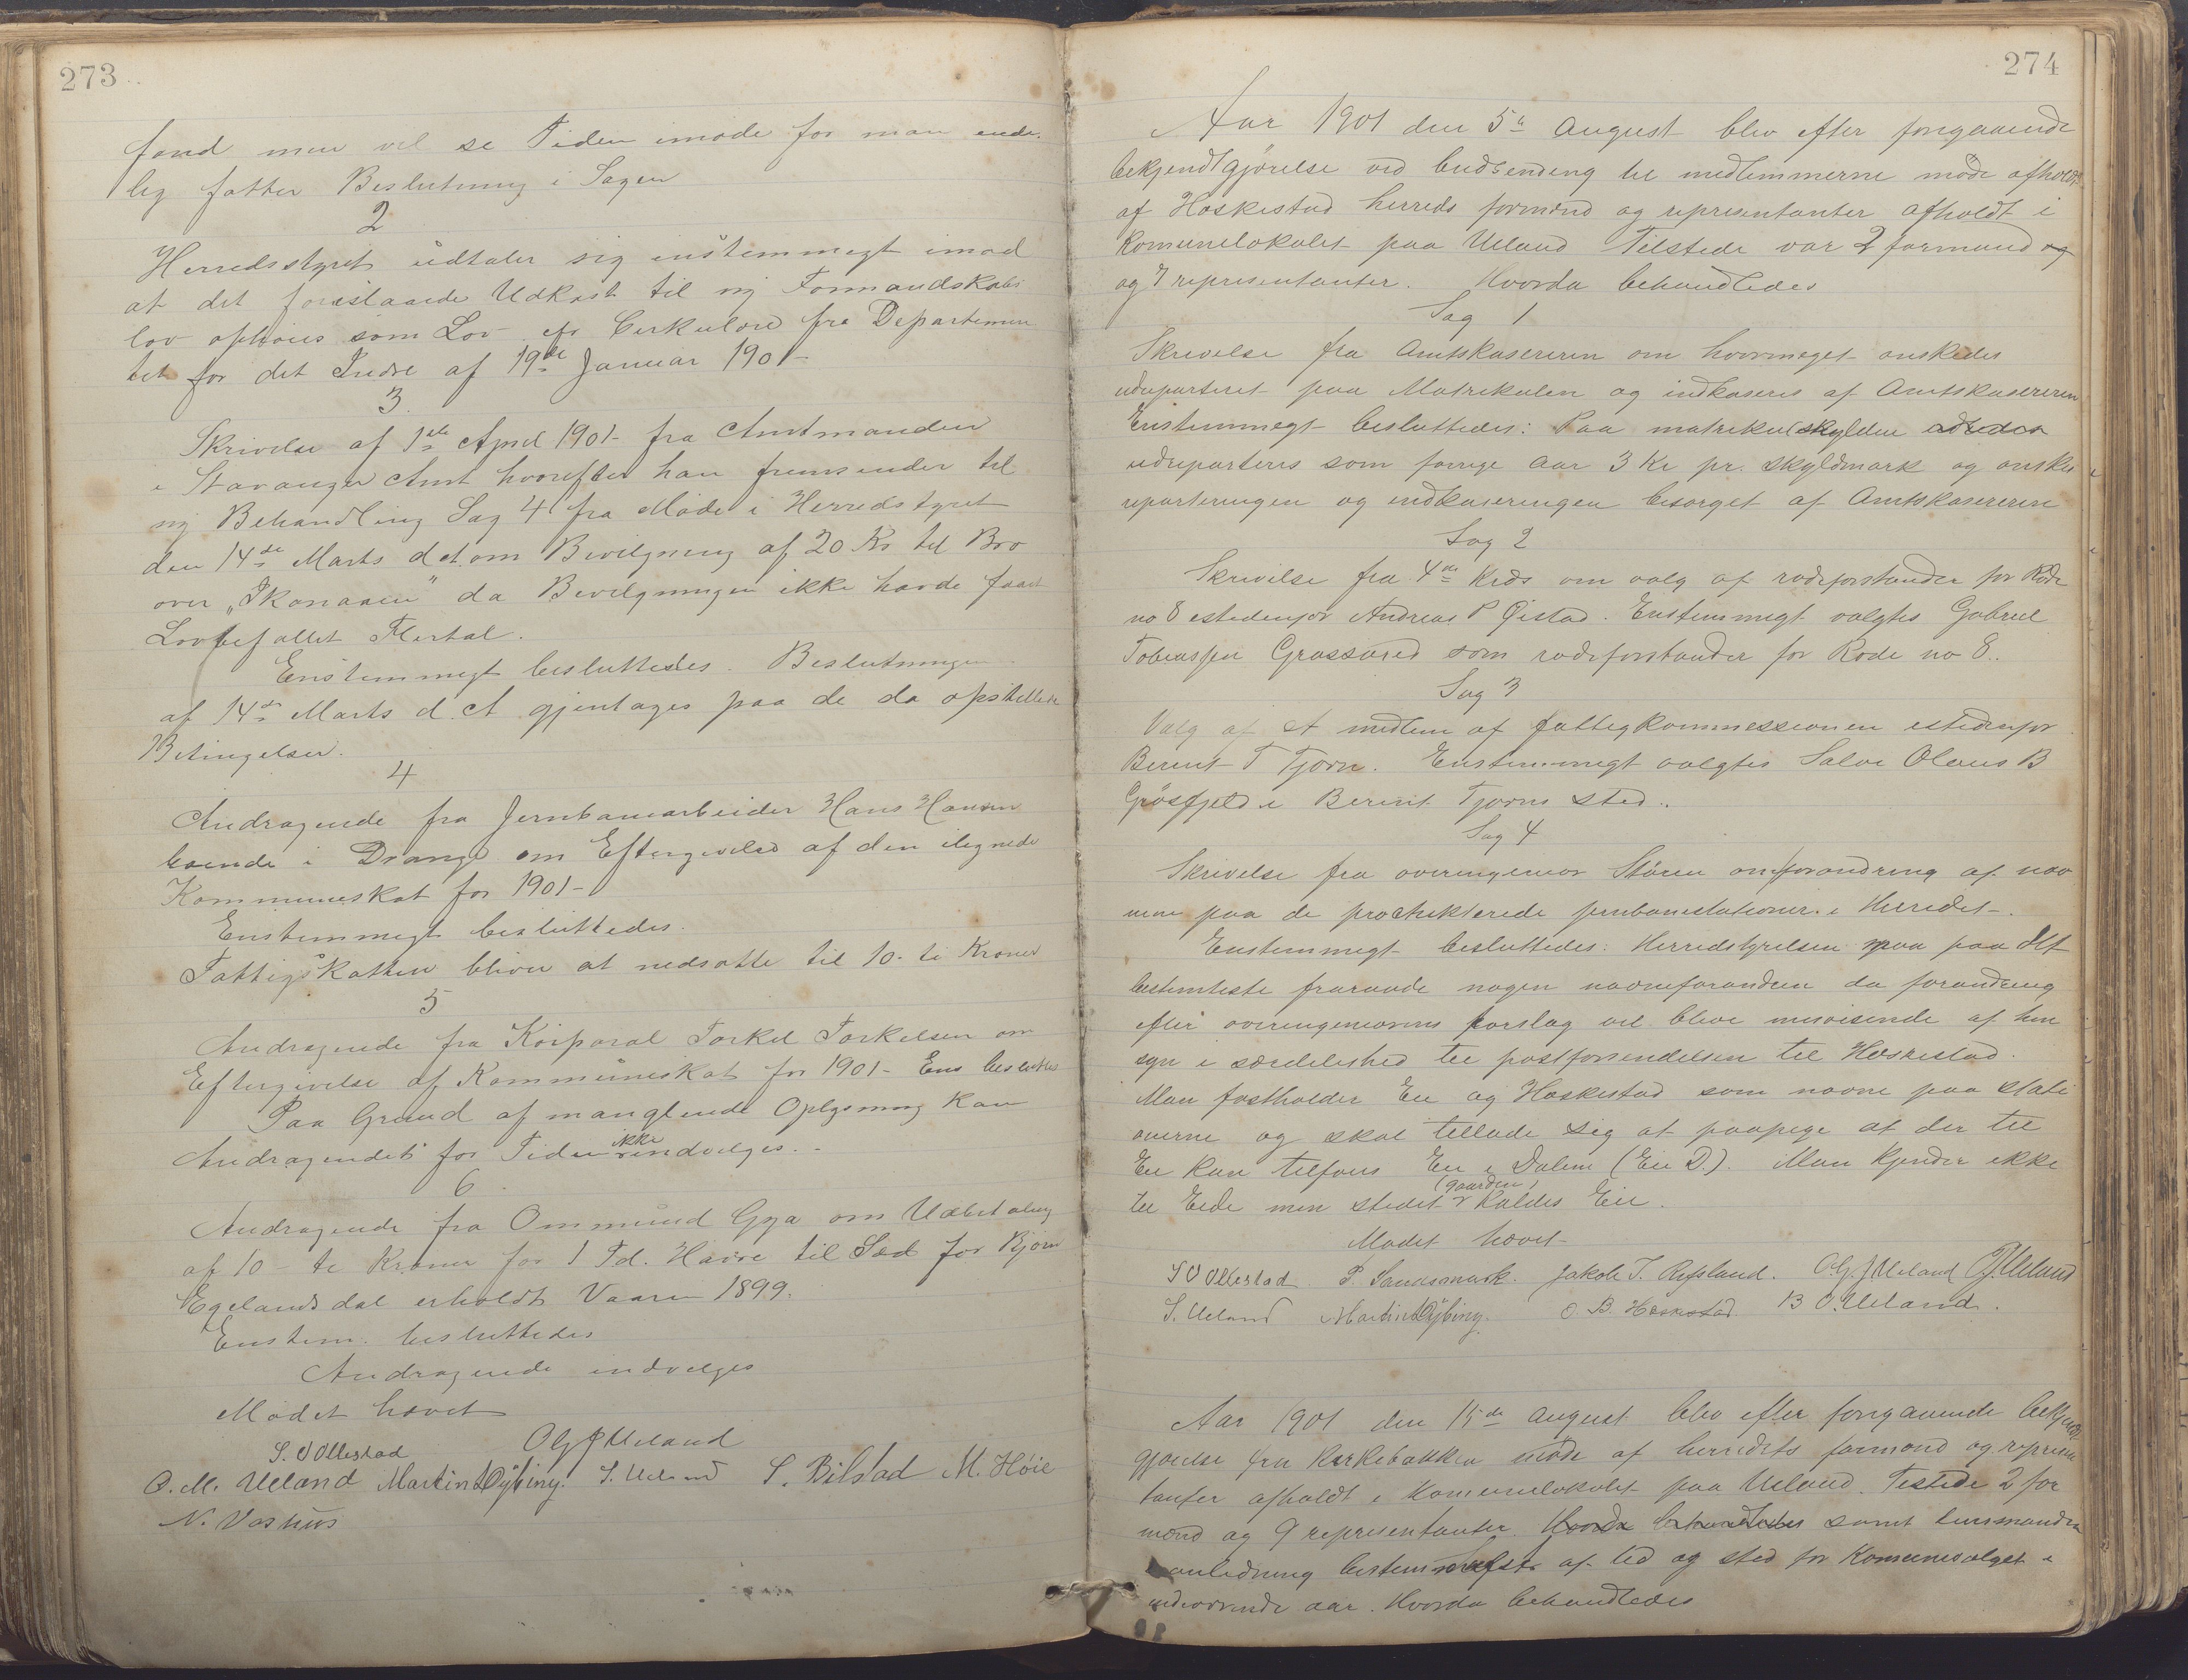 273
fond men vil se Tiden imøde før man ende-
lig fatter Beslutning i Sagen
2
Herredsstyret udtaler sig enstemmigt imod
at det foreslaaede Udkast til ny Formandskabs
lov ophøies som Lov cfr Cirkulære fra Departemen
tet for det Indre af 19de Januar 1901-
3.
Skrivelse af 1ste April 1901- fra Amtmanden
i Stavanger Amt hvorefter han fremsender til
ny Behandling Sag 4 fra Møde i Herredstyret
den 14de Marts d A. om Bevilgning af 20 Kr til Bro
over " da Bevilgningen ikke havde faaet
Lovbefallet Flertal.
Enstemmigt besluttedes. Beslutningen
af 14de Marts d. A gjentages paa de da opstillede
Betingelser.
4
Andragende fra Jernbanearbeider Hans Hansen
boende i Drange om Eftergivelse af den ilignede
Kommuneskat for 1901-
Enstemmigt besluttedes.
Fattigskatten bliver at nedsatte til 10- ti Kroner
5
Andragende fra Korporal Torkel Torkelsen om
Eftergivelse af Kommuneskat for 1901- Ens besluttes
Paa Grund af manglende Oplysning kan
Andragendet for Tiden ikke indvilges. -
6.
Andragende fra Ommund Gya om Udbetaling
af 10 - ti Kroner for 1 Td. Havre til Sæd for Bjørn
Egelandsdal erholdt Vaaren 1899.
Enstem. besluttedes
Andragende indvilges
Mødet hævet
S. V Ollestad Ol G J Ueland
O. M. Ueland Martin L Dybing. S. Ueland S. Bilstad M. Høie
N. Vashus
274
Aar 1901 den 5te August blev efter forgaaende
bekjendtgjørelse ved budsending til medlemmerne møde afholdt
af Heskestad herreds formænd og representanter afholdt i
Komunelokalet paa Ueland Tilstede var 2 formænd og
og 7 representanter. Hvorda behandledes
Sag 1
Skrivelse fra Amtskasereren om hvormeget ønskedes
udreparteret paa Matrikulen og indkaseres af Amtskasereren
Enstemmigt besluttedes: Paa matrikulskylden
udreparteres som forrige aar 3 Kr pr. skyldmark og ønskes
reparteringen og indkaseringen besorget af Amtskasereren
Sag 2
Skrivelse fra 4de Kreds om valg af rodeforstander for Rode
no 8 istedenfor Andreas P Øistad. Enstemmigt valgtes Gabriel
Tobiassen Grøssared som rodeforstander for Rode no 8..
Sag 3
Valg af et medlem af fattigkommessionen istedenfor
Berent T Tjørn. Enstemmigt valgtes Salve Olaus B
Grøsfjeld i Berent Tjørns sted..
Sag 4
Skrivelse fra overingeniør Støren om forandring af nav
nene paa de prosjekterede jernbanestationer i Herredet-.
Enstemmigt besluttedes: Herredstyrelsen maa paa det
bestemteste fraraade nogen navneforandren da forandring
efter overingeniørens forslag vil blive misvisende af hen
syn i særdeleshed til postforsendelsen til Heskestad.
Man fastholder Eie og Heskestad som navne paa stati
onerne og skal tillade sig at paapege at der til
Eie kan tilføies Eie i Dalene (Eie D.). Man kjender ikke
til Eide men stedet (gaarden) kaldes Eie.
Mødet hævet
S V Ollestad. P. Sandsmark. Jakob T. Refsland. Ol G. J Ueland P J Ueland
S. Ueland Martin L Dybing. O. B. Heskestad. B O. Ueland.
Aar 1901 den 15de August blev efter forgaaende bekjendt
gjørelse fra Kirkebakken møde af herredets formænd og represen
tanter afholdt i Komunelokalet paa Ueland. Testede 2 for
mænd og 9 representanter. Hvorda behandledes samt lensmanden
i anledning bestemmelse af tid og sted for Komunevalget i
indeværende aar. Hvorda behandledes